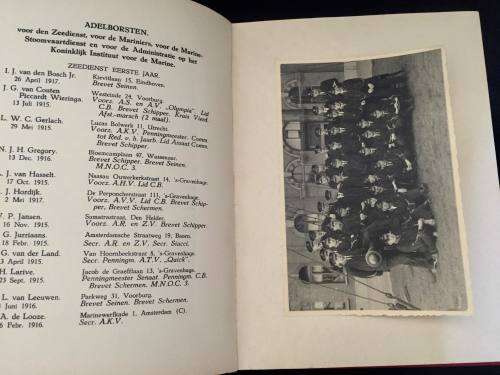 ADELBORSTEN.
voor den Zeedienst, voor de Mariniers, voor de Marine-
Stoomvaartdienst en voor de Administratie op het
Koninklijk Instituut voor de Marine.
ZEEDIENST EERSTE JAAR.
I. J. van den Bosch Jr. Kievitlaan 15, Eindhoven.
26 April 1917. Brevet Seinen.
J. G. van Couten Westeinde 24, Voorburg.
Piccardt Wieringa. Voorz. A.S. en A.V. „Olympia" Lid
13 Juli 1915. C.B. Brevet Schipper. Kruis Vierd.
Afst.-marsch (2 maal).
L. W. C. Gerlach. Lucas Bolwerk 11, Utrecht.
29 Mei 1915. Voorz. A.K.V. Penningmeester Comm.
tot Red. v. h. Jaarb. Lid Assaut Comm.
Brevet Schipper
N. J. H. Gregory. Bloemcamplaan 47, Wassenaar.
13 Dec. 1916. Brevet Schipper. Brevet Seinen.
M.N.O.C. 3.
J. van Hasselt. Nassau Ouwerkerkstraat 14, 's-Gravenhage.
17 Oct. 1915. Voorz. A.H.V. Lid C.B.
J. Hordijk. De Perponcherstraat 111, 's-Gravenhage.
Mei 1917. Voorz. A.V.V. Lid C.B. Brevet Schip-
per. Brevet Schermen.
V. P. Jansen. Sumatrastraat, Den Helder.
16 Nov. 1915. Voorz. A.R. en Z.V. Brevet Schipper.
G. Jurriaans. Amsterdamsche Straatweg 19, Baarn.
18 Febr. 1915. Secr. A.R. en Z.V. Secr. Siacci.
G. van der Land. Van Hoornbeekstraat 8, 's-Gravenhage.
April 1915. Secr. Penningm. A.T.V. „Quick".
H. Larive. Jacob de Graefflaan 13, 's-Gravenhage.
Sept. 1915. Penningmeester Senaat. Penningm. C.B.
Brevet Schermen. M.N.O.C. 3.
L. van Leeuwen. Parkweg 31, Voorburg.
Juni 1916. Brevet Seinen. Brevet Schermen.
A. de Looze. Marinewerfkade 1, Amsterdam (C).
6 Febr. 1916. Secr. A.K.V.